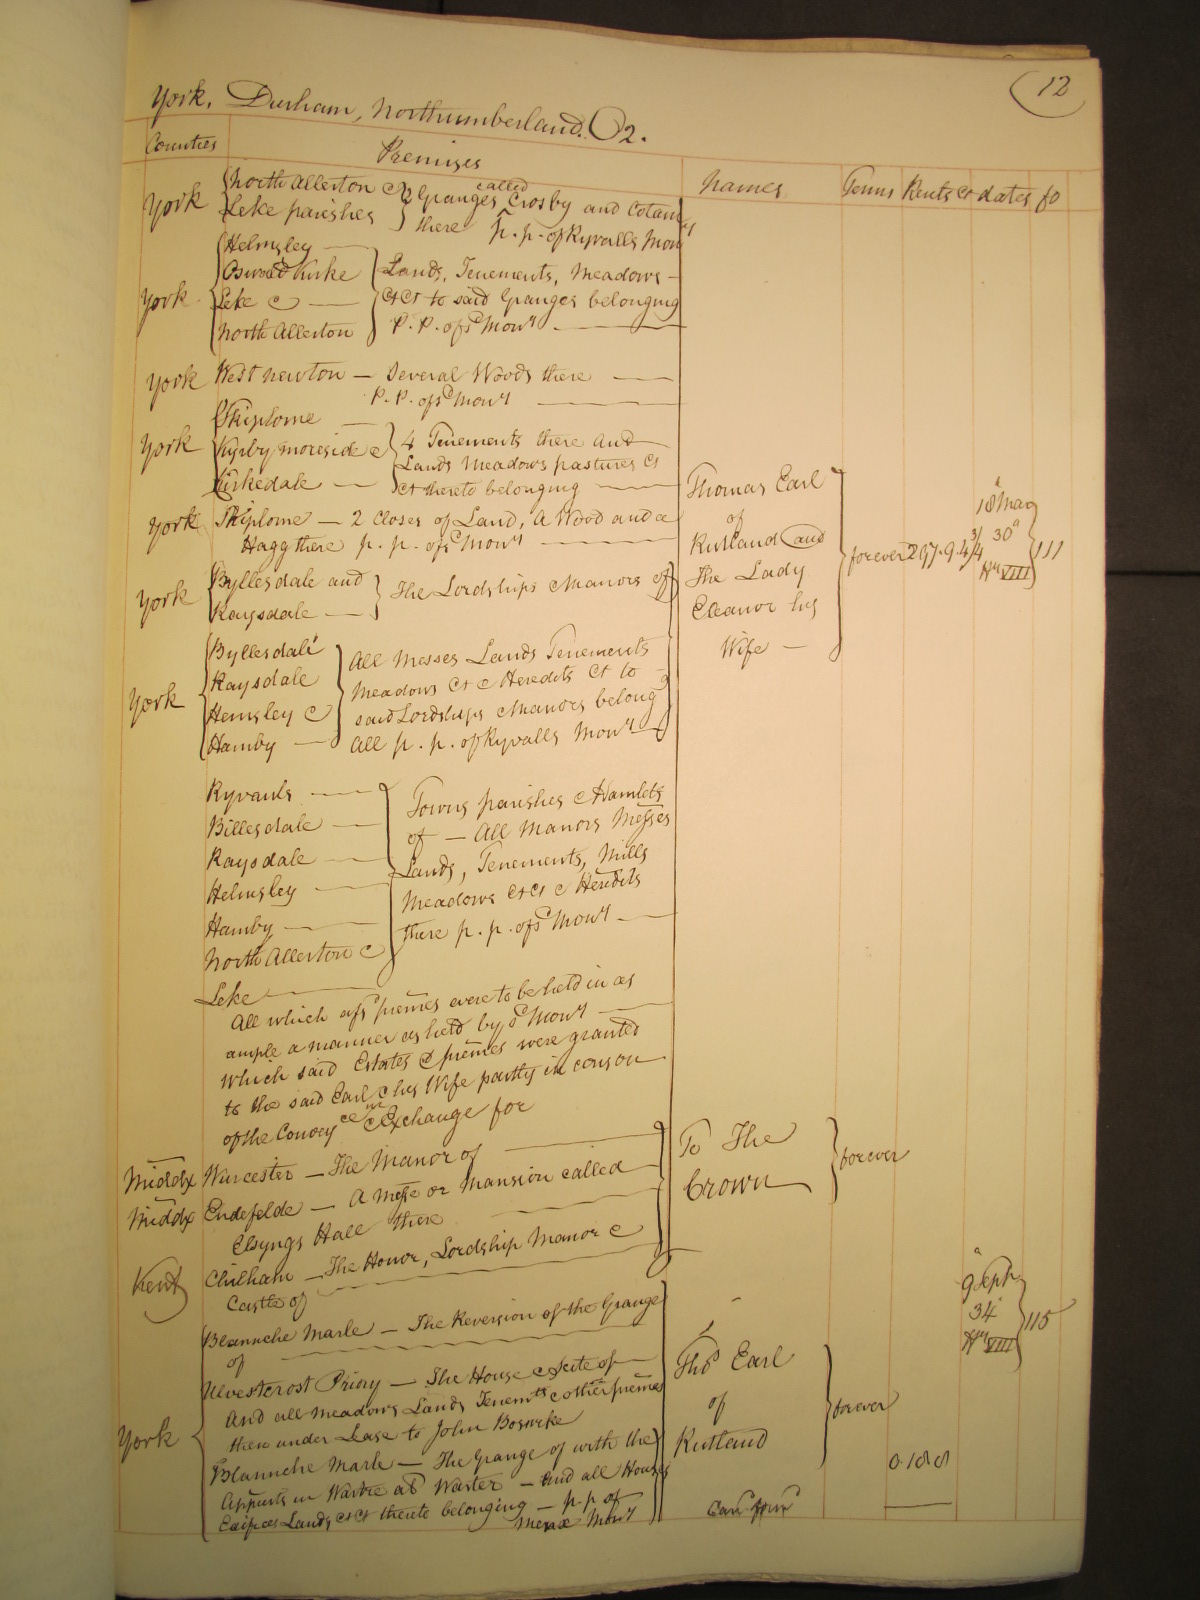 12
York, Durham, Northumberland. 2.
Counties Premises Names Terms Rents &c dates fo
York North Allerton & Granges called Crosby and Cotam
Leke parishes there p. p. of Ryvalls Mon
Helmsley
Oswald Kirke Lands, Tenements, Meadows
York Leke & &c &c to said Granges belonging
North Allerton P. P. of sd Mony
York West Newton — Several Woods there
P. P. of sd Mony
Skiplome
York Kyrby moreside & 4 Tenements there and
Lands Meadows pastures &c
Kirkedale &c thereto belonging
York Skiplome — 2 Closes of Land, a Wood and a
Hagg there p. p. of sd Mony
York Byllesdale and The Lordships & Manors of
Raysdale
Byllesdale All Messes Lands Tenements
Raysdale Meadows &c & Heredits &c to
York Hemsley & said Lordships & Manors belong
Hamby All p. p. of Ryvalls Mony
Thomas Earl
of
Rutland and
The Lady
Eleanor his
Wife
forever
18 May
30
Hy VIII
111
Ryvauls Towns parishes & Hamlets
Billesdale of — All Manors Messes
Raysdale Lands, Tenements, Mills
Helmsley Meadows &c &c & Heredits
Hamby there p. p. of sd Mony
North Allerton &
Leke
All which afsd premes were to be held in as
ample a manner as held by sd Mony
which said Estates & premes were granted
to the said Earl & his Wife partly in conson
of the Convey ce & in Exchange for
Middx Worcester — The Manor of
Middx Endefelde — A Messe or Mansion called
Elsyngs Hall there
Kent Chilham — The Honor, Lordship Manor &
Castle of
To The
Crown
forever
Blannche Marle — The Reversion of the Grange
of
Ulvescrost Priory — The House & Scite of
And all meadows Lands Tenemts & other premes
then under Lease to John Boswike
York Blannche Marle — The Grange of with the
Appurts in Wartre als Warter — and all Houses
Lands &c &c thereto belonging — p. p. of
Mony
Thos Earl
of
Rutland
forever
9 Septr
34
Hy VIII
115